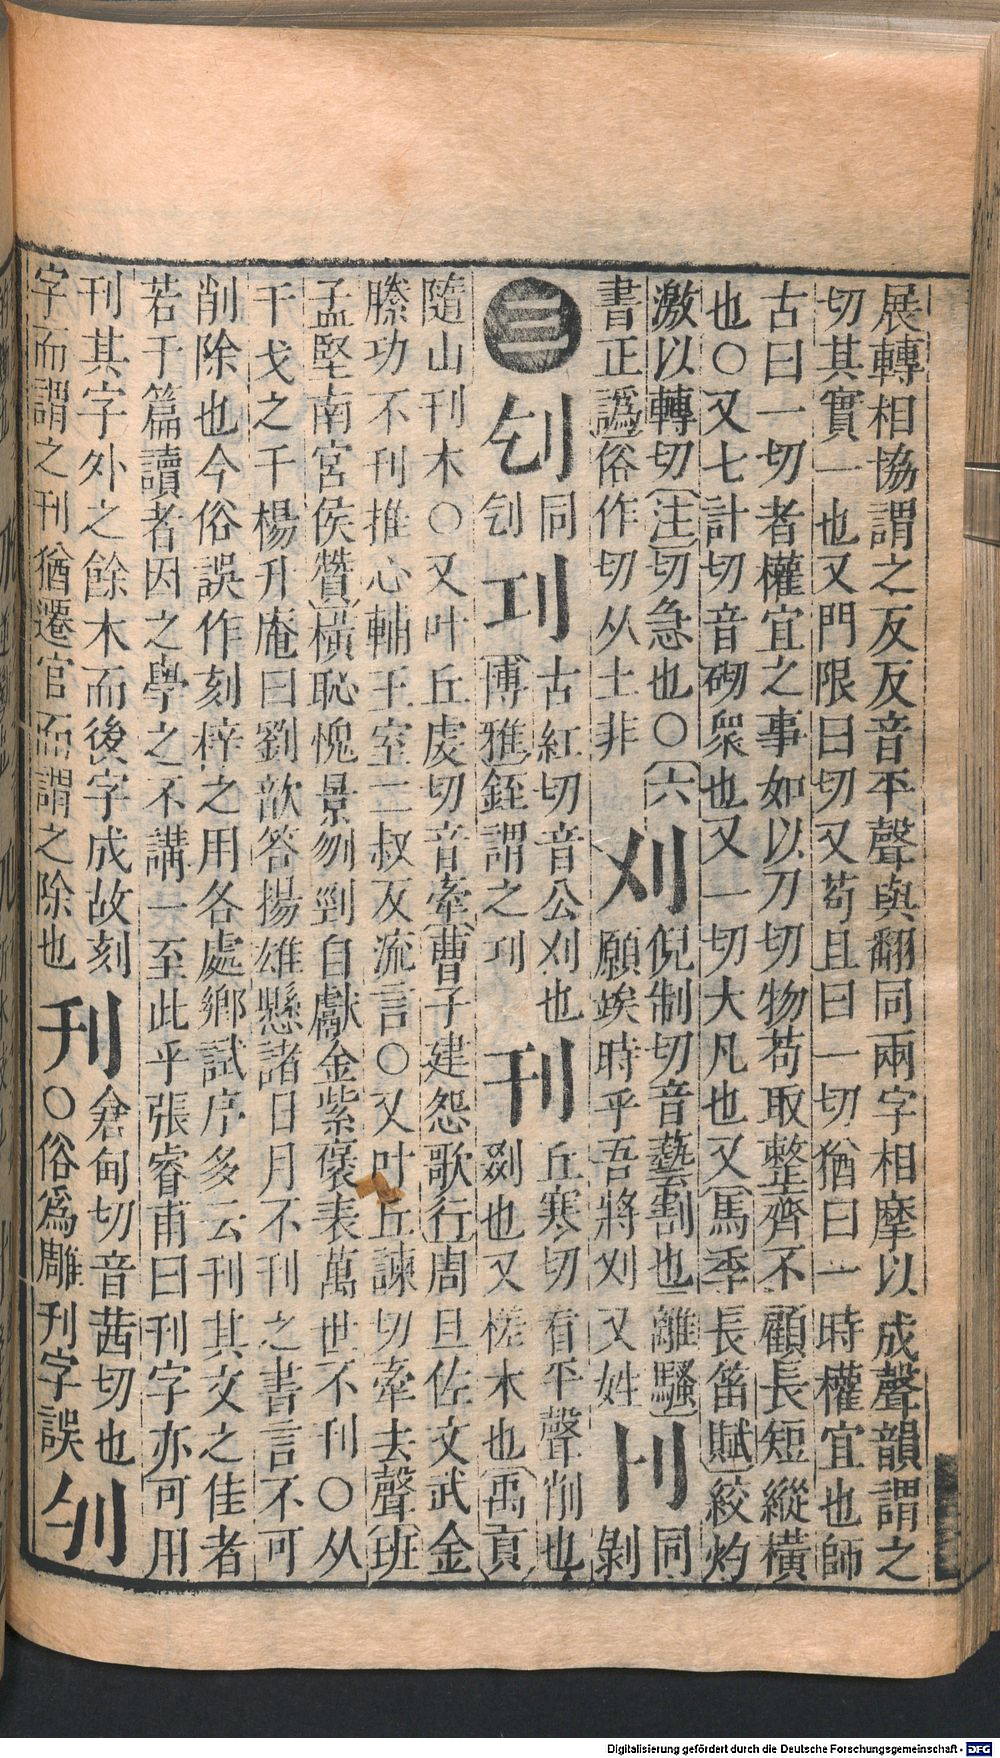 展轉相協謂之反反音平聲與翻同兩字相摩以成聲韻謂之
切其實一也又門限曰切又苟且曰一切猶曰一時權宜也師
古曰一切者權宜之事如以刀切物苟取整齊不顧長短縱橫
也○又七計切音砌衆也又一切大凡也又馬季長笛賦絞灼
激以轉切注切急也○六
書正譌俗作切从土非
刈
倪制切音藝割也離騷
願竢時乎吾將刈又姓
同
剝
三
同
㓚
古紅切音公刈也
博雅銍謂之㓚
刊
丘寒切看平聲削也
剟也又槎木也禹貢
隨山刊木○又叶丘虔切音牽曹子建怨歌行周旦佐文武金
縢功不刊推心輔王室二叔反流言○又叶丘諫切牽去聲班
孟堅南宮侯贊橫恥愧景刎剄自獻金紫褒表萬世不刊○从
干戈之干楊升庵曰劉歆答揚雄懸諸日月不刊之書言不可
削除也今俗誤作刻梓之用各處鄉試序多云刊其文之佳者
若于篇讀者因之學之不講一至此乎張睿甫曰刊字亦可用
刊其字外之餘木而後字成故刻
字而謂之刊猶遷官而謂之除也
刋
倉甸切音茜切也
○俗爲雕刋字誤
Digitalisierung gefördert durch die Deutsche Forschungsgemeinschaft - DFG